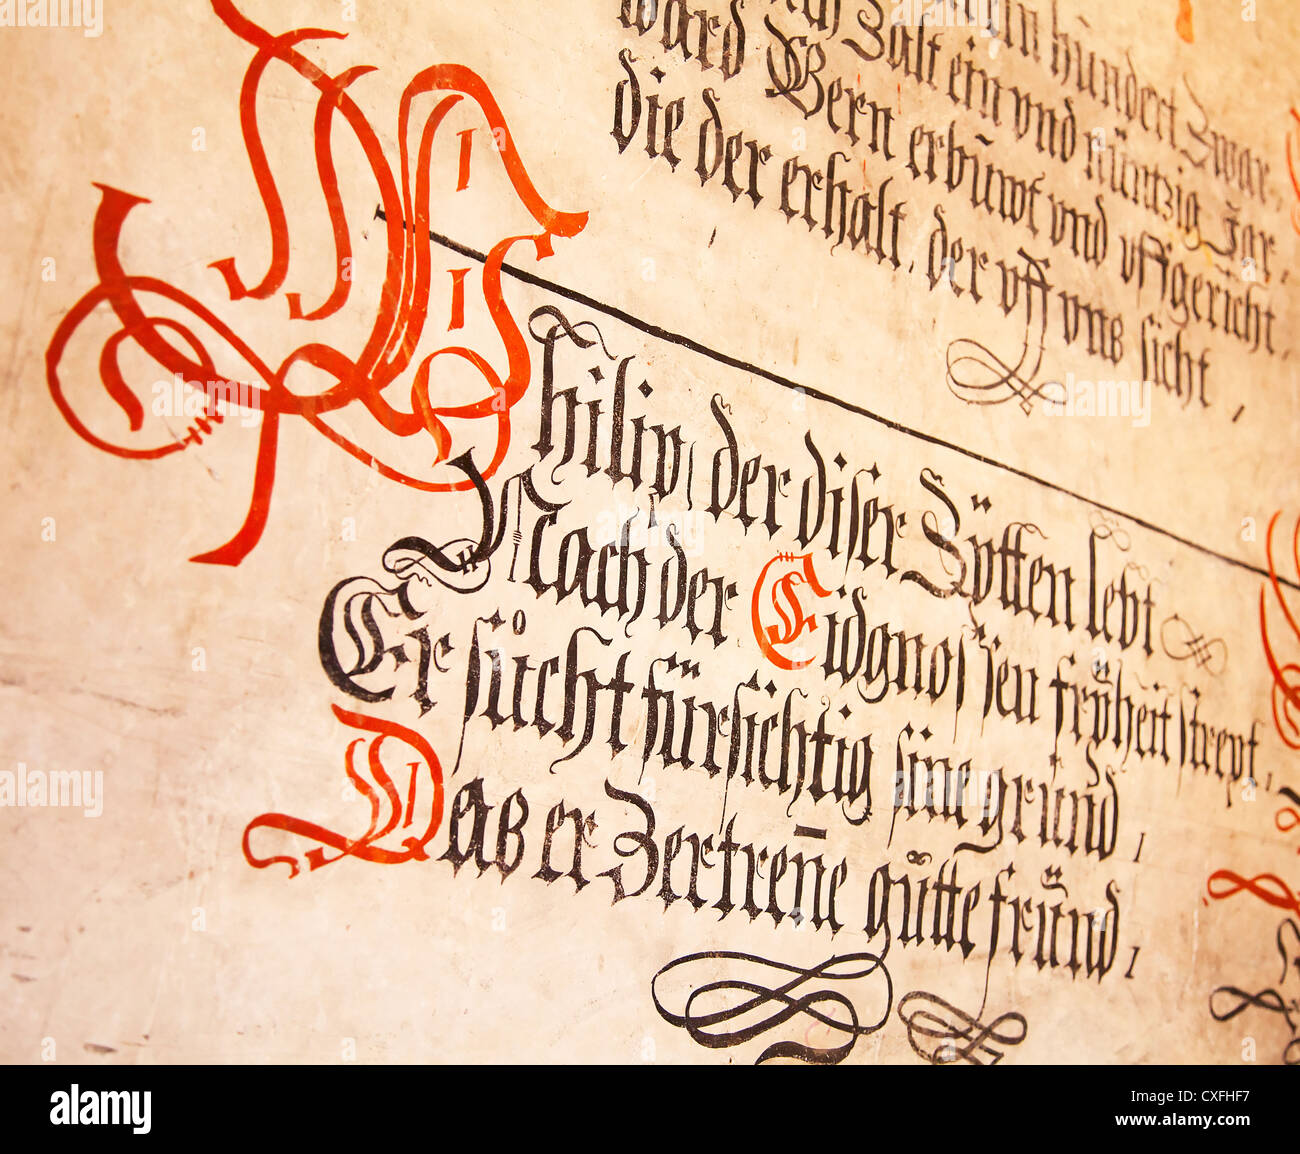 hundert Zwar,
Zalt ein vnd Nüntzig Jar,
ward Bern erbuwt vnd vffgericht,
die der erhalt, der vff vns sicht,
Philip, der diser Zytten lebt
Nach der Eidgnossen fryheit strept,
Er sůcht fürsichtig sine grund,
Das er Zertrene gůtte fründ,
alamy
Image ID: CXFHF7
www.alamy.com